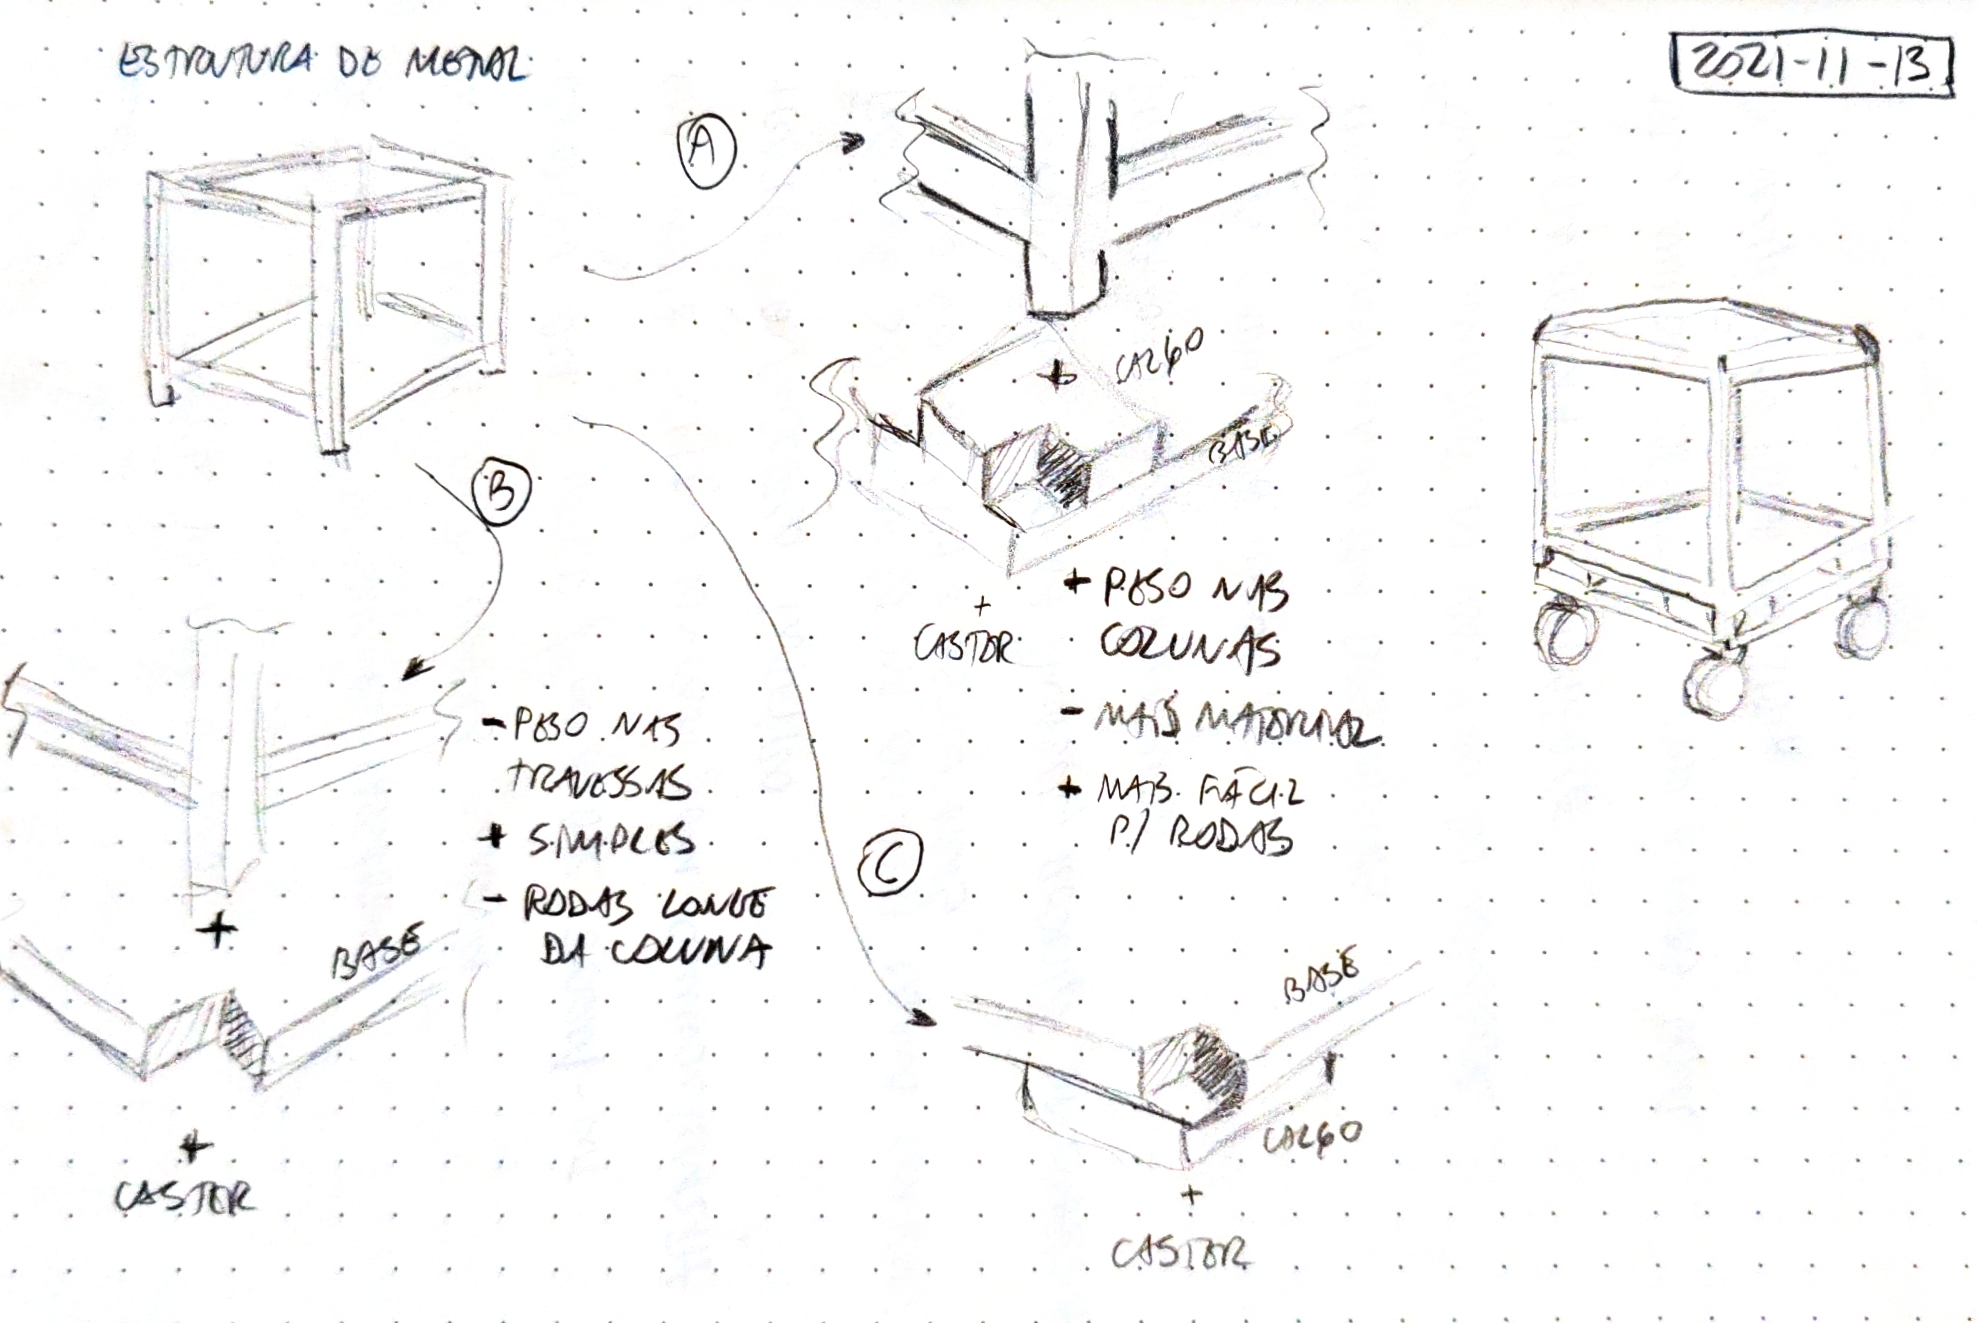 ESTRUTURA DE METAL
2021-11-13
A
+ CALÇO
BASE
+
CASTOR
+ PESO NAS
COLUNAS
- MAIS MATERIAL
+ MAIS FÁCIL
P/ RODAS
B
- PESO NAS
TRAVESSAS
+ SIMPLES
- RODAS LONGE
DA COLUNA
+
BASE
+
CASTOR
C
BASE
CALÇO
+
CASTOR